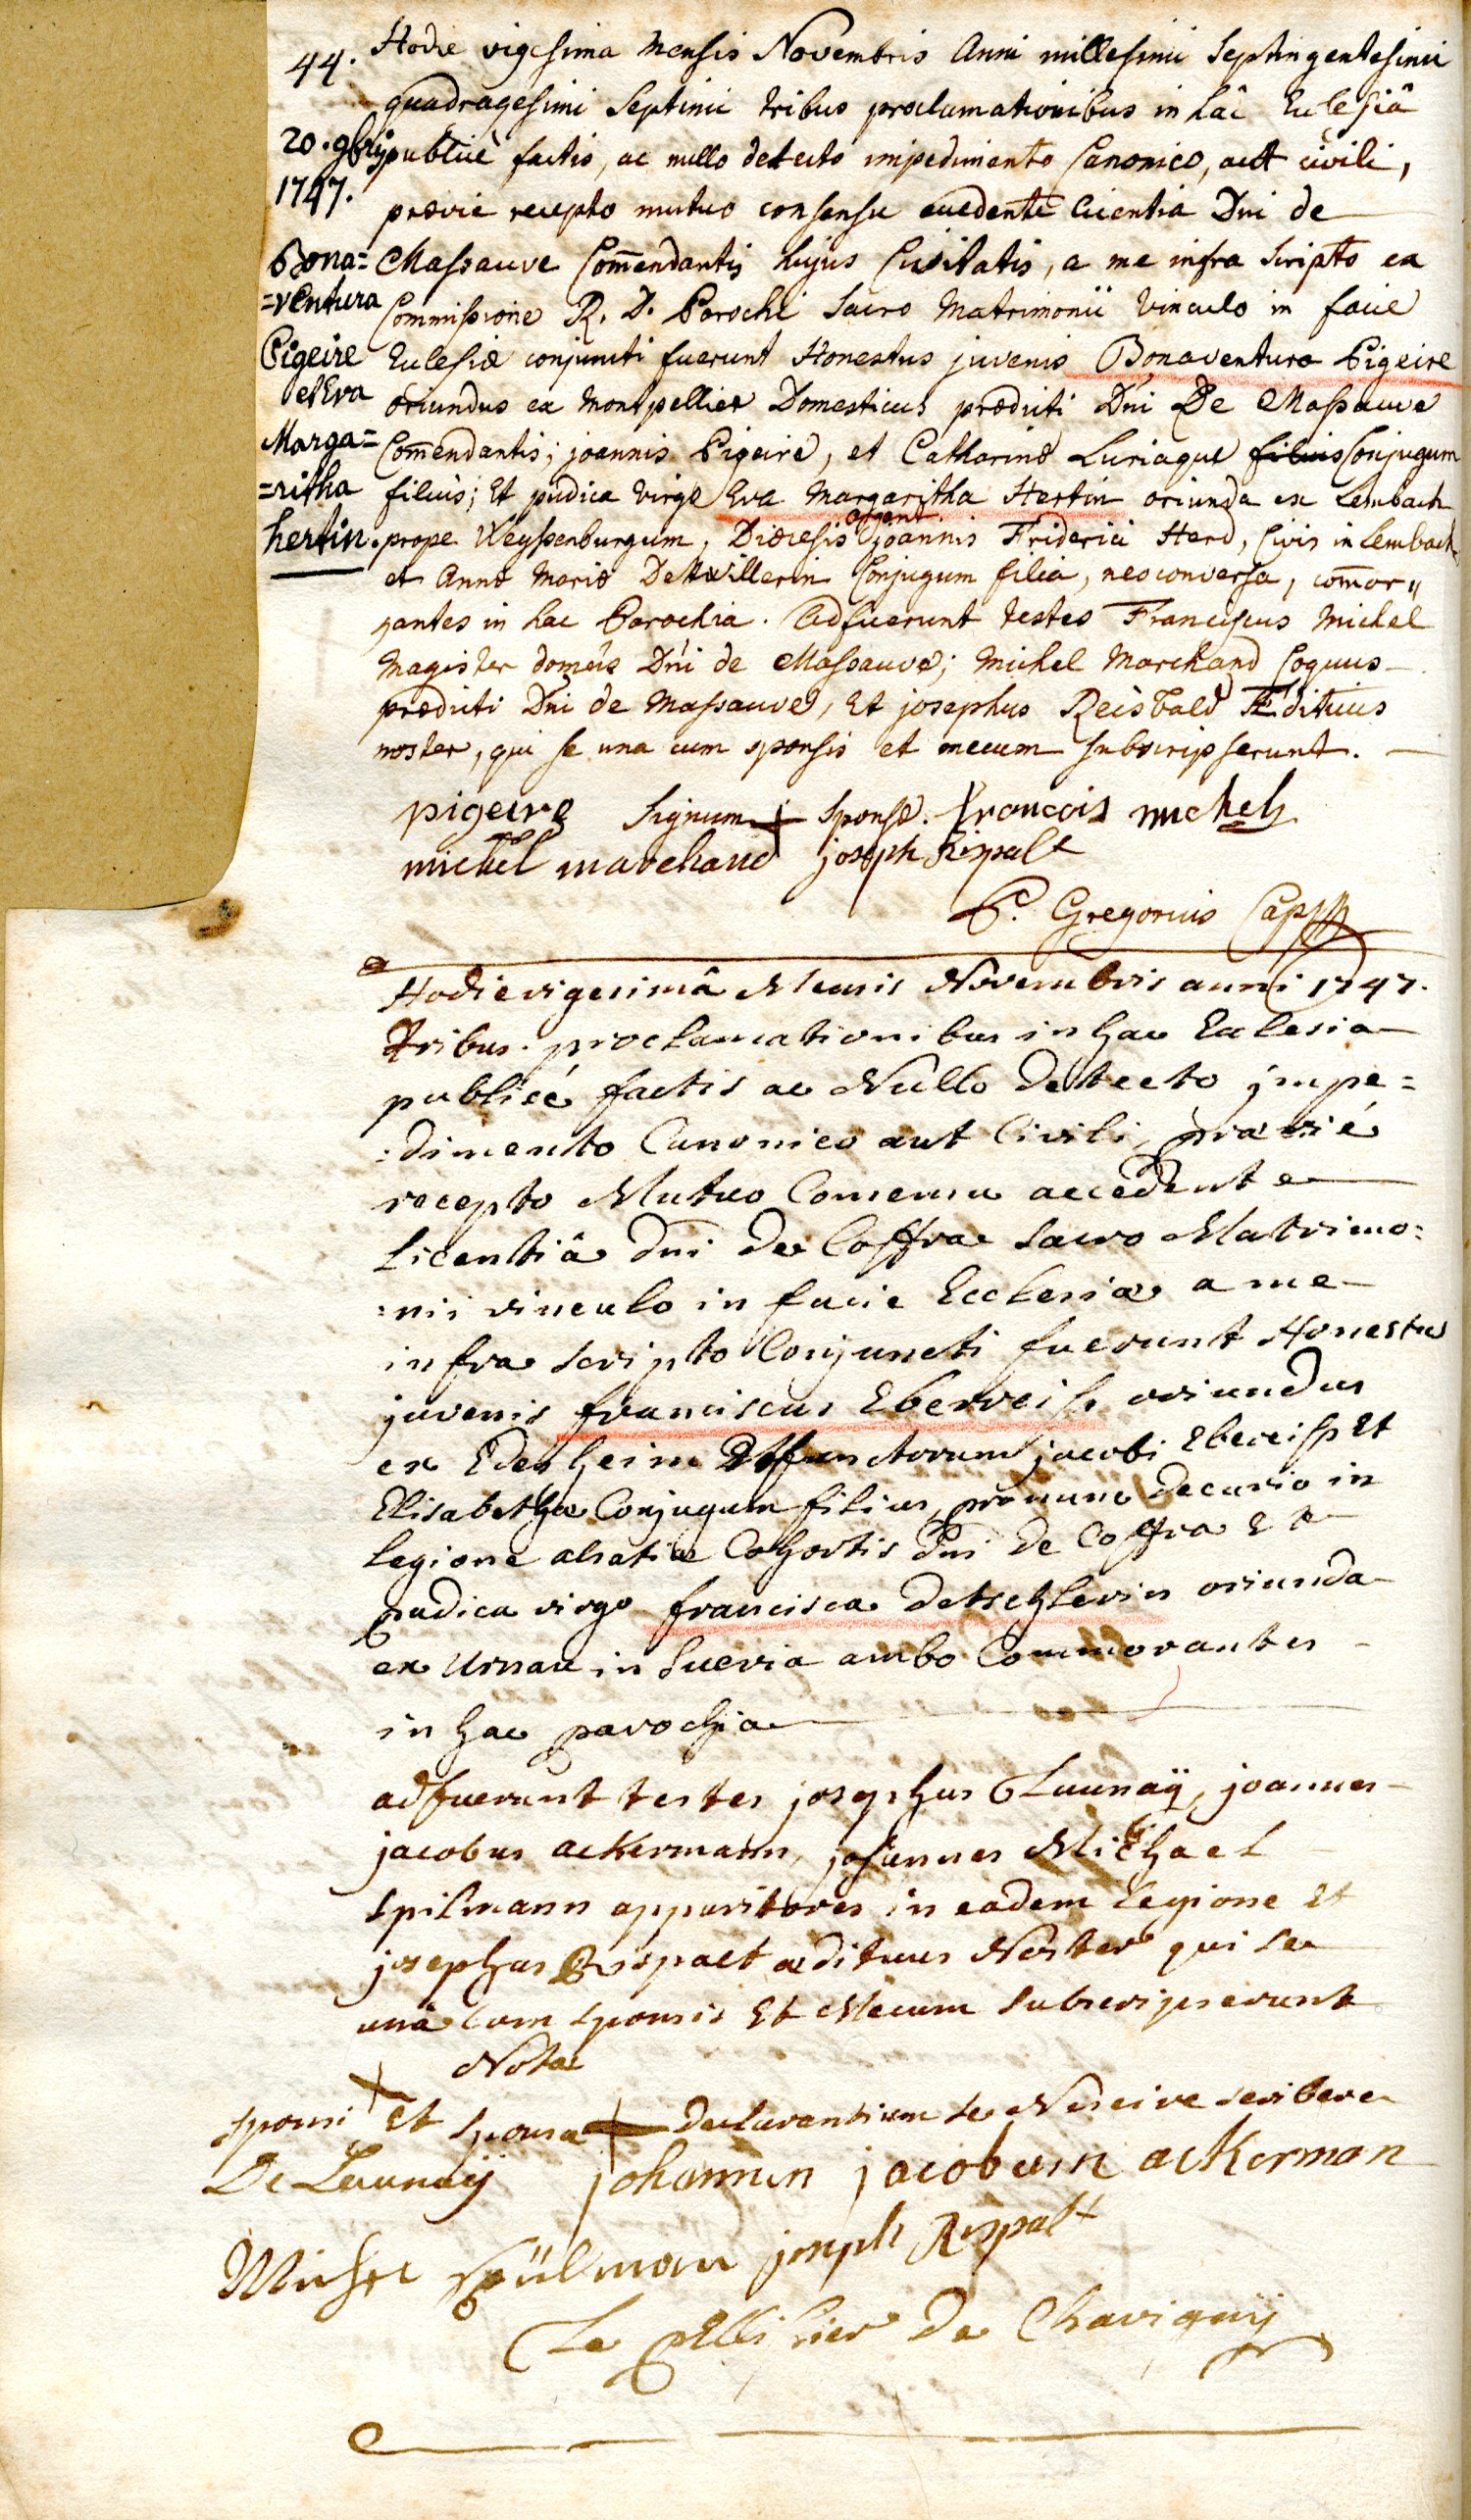 44.
20. 9bris
1747.
Bona=
=ventura
Pigeire
et Eva
Marga=
=ritha
hertin.
Hodie vigesima mensis Novembris Anni millesimi Septingentesimi
quadragesimi Septimi tribus proclamationibus in hâc Eclesiâ
publicè factis, ac nullo detecto impedimento Canonico, aut civili,
prævie recepto mutuo consensu accedente licentia Dni de
Massauve Com̄endantis hujus Civitatis, a me infra scripto ex
Commissione R. D. Parochi sacro Matrimonii vinculo in facie
Eclesiæ conjuncti fuerunt Honestus juvenis Bonaventura Pigeire
oriundus ex Montpellier Domesticus prædicti Dni De Massauve
Com̄endantis; joannis Pigeire, et Catharinæ Luriague filius Conjugum
filius; Et pudica virgo Eva Margaritha Hertin oriunda ex Lembach
prope Weyssenburgum, Diœcesis argent. joannis Friderici Herd, Civis in Lembach
et Annæ Mariæ Dettwillerin Conjugum filia, neoconversa, com̄or,,
rantes in hac Parochia. Adfuerunt testes Franciscus Michel
Magister domûs Dni de Massauve; Michel Marchand Coquus
prædicti Dni de Massauve, Et josephus Reisbald Ædituus
noster, qui se una cum sponsis et mecum subscripserunt.
pigeire Signum + Sponsæ. francois michel
michel marchand joseph Rispalt
P. Gregorius Cap
Hodie vigesimâ Mensis Novembris anni 1747.
tribus proclamationibus in hac Ecclesia
publicé factis ac Nullo detecto jmpe=
:dimento Canonico aut Civili, prævié
recepto Mutuo Consensu accedente
Licentiâ dni de Coffra Sacro Matrimo:
:nii vinculo in facie Ecclesiæ a me
infra scripto Conjuncti fuerunt Honestus
juvenis franciscus Eberveiss oriundus
ex Edesheim Deffunctorum jacobi Ebeveiss Et
Elisabethæ Conjugum filius, pronunc decurio in
Legione alsatiæ Cohortis dni de Coffra Et
pudica virgo francisca Detschlerin oriunda
ex Urnau in Suevia ambo Commorantes
in hac parochia
adfuerunt testes josephus Launaÿ, joannes
jacobus ackermann, johannes Michael
Spilmann apparitores in eadem Legione Et
josephus Rispalt ædituus Noster qui se
unâ Cum sponsis Et Mecum subscripserunt
Nota
sponsi + Et sponsæ + declarantium se Nescire scribere
De Launaÿ johannes jacobus ackerman
Michel Spülman joseph Rispalt
Le pellisier de Chavignÿ